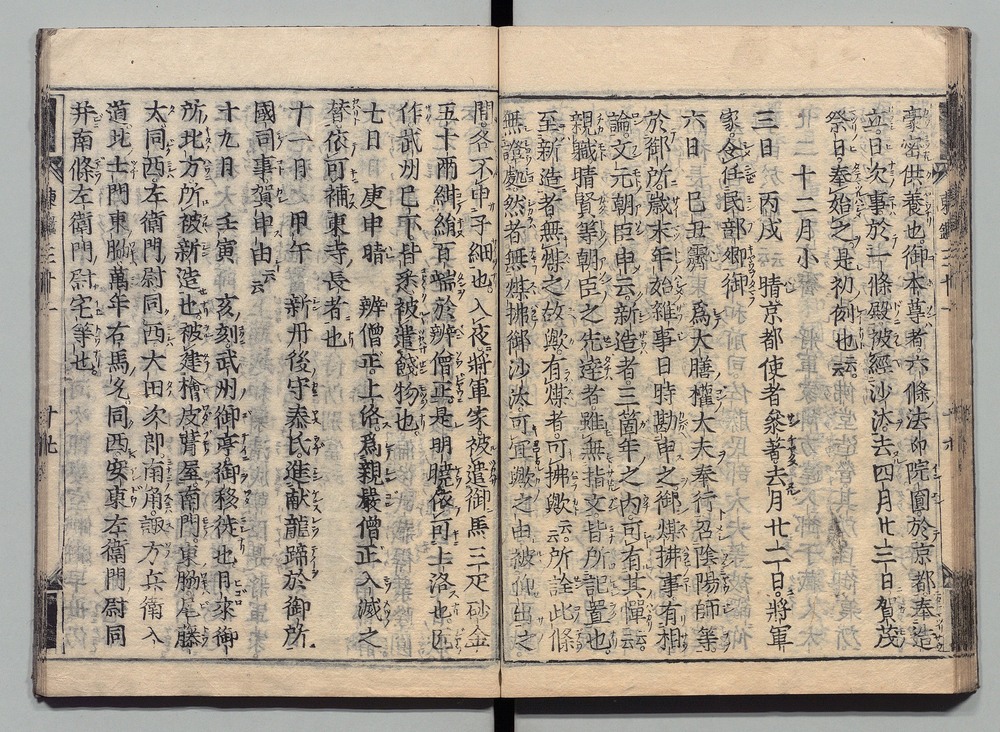 豪密供養也御本尊者六條法印院圓於京都奉造
立。日次事於一條殿被經沙汰。去四月廿三日賀茂
祭日。奉始之是初例也云云。
十二月小
三日 丙戌 晴京都使者參著去月廿二日。將軍
家令任民部卿御
六日 己丑霽 爲大膳權大夫奉行召陰陽師等
於御所歳末年始雜事日時勘申之御煤拂事有相
論文元朝臣申云新造者。三箇年之内可有其憚云云
親職晴賢等朝臣之先達者雖無指文皆所記置也
至新造者無煤之故歟。有煤者。可拂歟云云。所詮此條
無證據然者無煤拂御沙汰可宜歟之由被仰出之
間各不申子細也入夜將軍家被遣御馬三疋砂金
五十兩紺絹百端於辨僧正是明曉依可上洛也匠
作武州已下皆悉被遣餞物也。
七日 庚申晴 辨僧正。上洛爲親嚴僧正入滅之
替依可補東寺長者也
十一日 甲午 新丹後守泰氏。進献龍蹄於御所。
國司事賀申由云云
十九日 壬寅 亥刻武州御亭御移徙也日來御
所北方所被新造也被建檜皮葺屋南門東脇尾藤
太同西左衞門尉同西大田次郎南角諏方兵衞入
道北土門東脇萬年右馬允同西安東左衞門尉同
并南條左衞門尉宅等也
東鑑三十一
十九